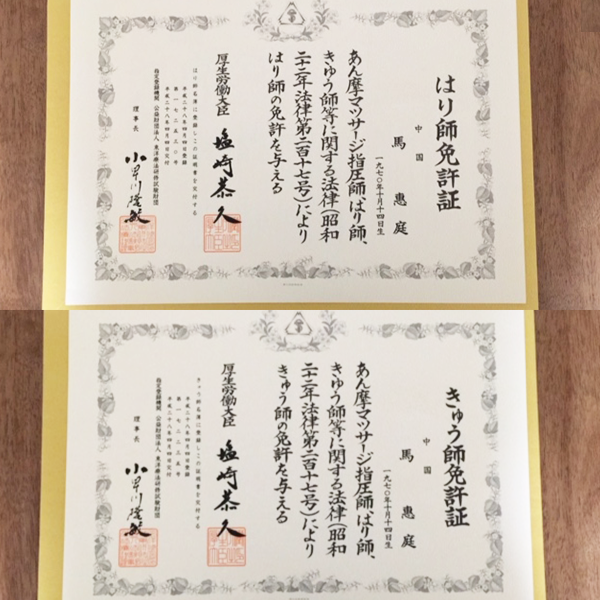 はり師免許証
中国
馬 惠庭
一九七〇年十月十四日生
あん摩マツサージ指圧師、はり師、
きゆう師等に関する法律（昭和
二十二年法律第二百十七号）により
はり師の免許を与える
厚生労働大臣 塩崎恭久
はり師名簿に登録しこの証明書を交付する
平成二十八年四月四日登録
第一七二五三〇号
平成二十八年四月四日交付
指定登録機関 公益財団法人 東洋療法研修試験財団
理事長 小早川隆敏
きゅう師免許証
中国
馬 惠庭
一九七〇年十月十四日生
あん摩マツサージ指圧師、はり師、
きゆう師等に関する法律（昭和
二十二年法律第二百十七号）により
きゅう師の免許を与える
厚生労働大臣 塩崎恭久
きゅう師名簿に登録しこの証明書を交付する
平成二十八年四月四日登録
第一七二二三五号
平成二十八年四月四日交付
指定登録機関 公益財団法人 東洋療法研修試験財団
理事長 小早川隆敏